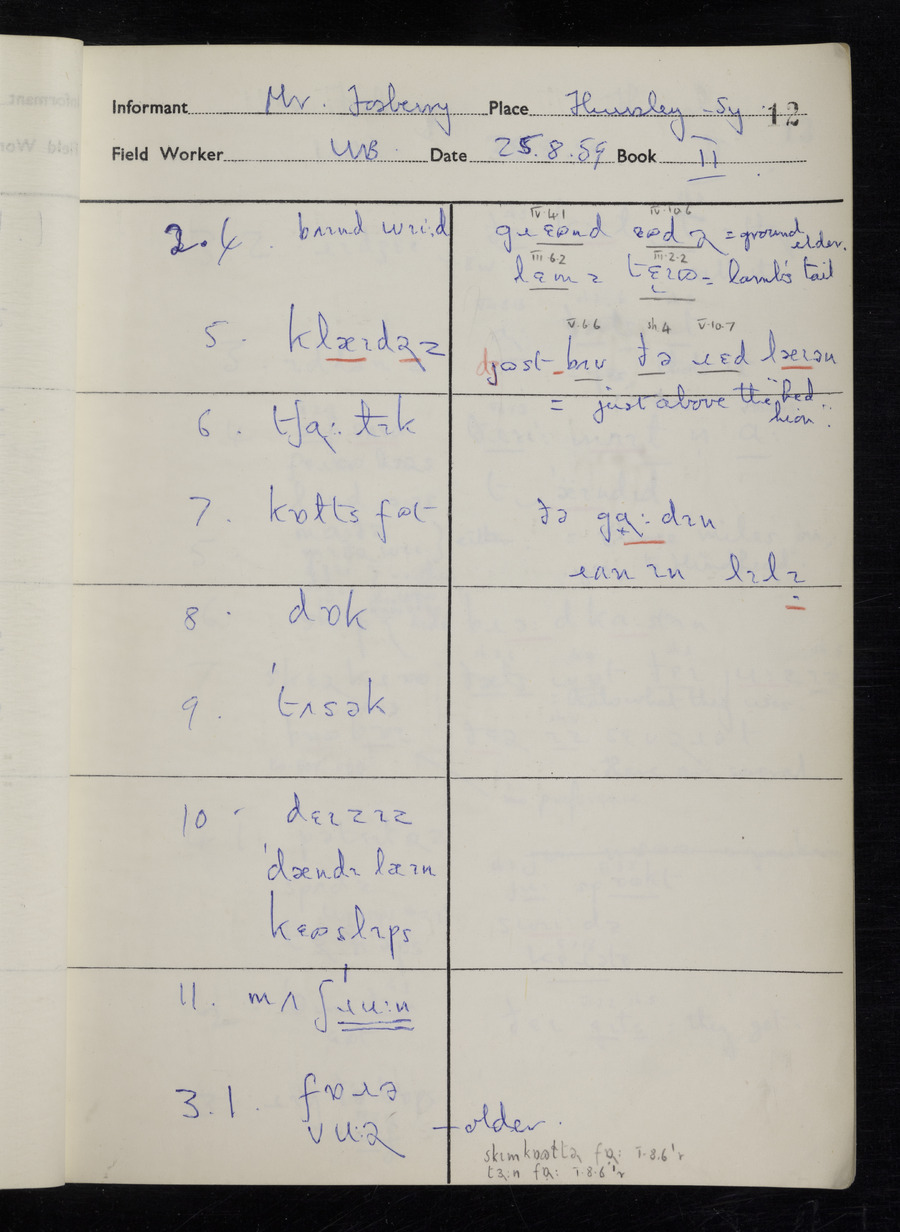 Informant Mr. Fosberry Place Thursley - Sy 12
Field Worker WB. Date 25.8.59 Book II
2.4. baɪnd wɪi:d
IV.4.1 IV.10.6
gɹɛʊnd = ground elder.
III.6.2 III.2.2
= lamb's tail
5. klæɪdəz
V.6.6 sh 4 V.10.7
ðə ɹɛd læɪən
= just above the "Red
Lion".
6. tʃɑ: tɪk
7. kɒltsfʊt
ðə gɑ:dɪn
ɪan ɪn lɪlɪ
8. dɒk
9. ˈtʌsək
10. dɛɪzɪz
ˈdændɪ læɪn
kɛʊslɪps
11. mʌˈʃɹu:n
3.1. fɒɹə
vu:ə – older.
fə: I.8.6'r
tɜ:n fə: I.8.6'r